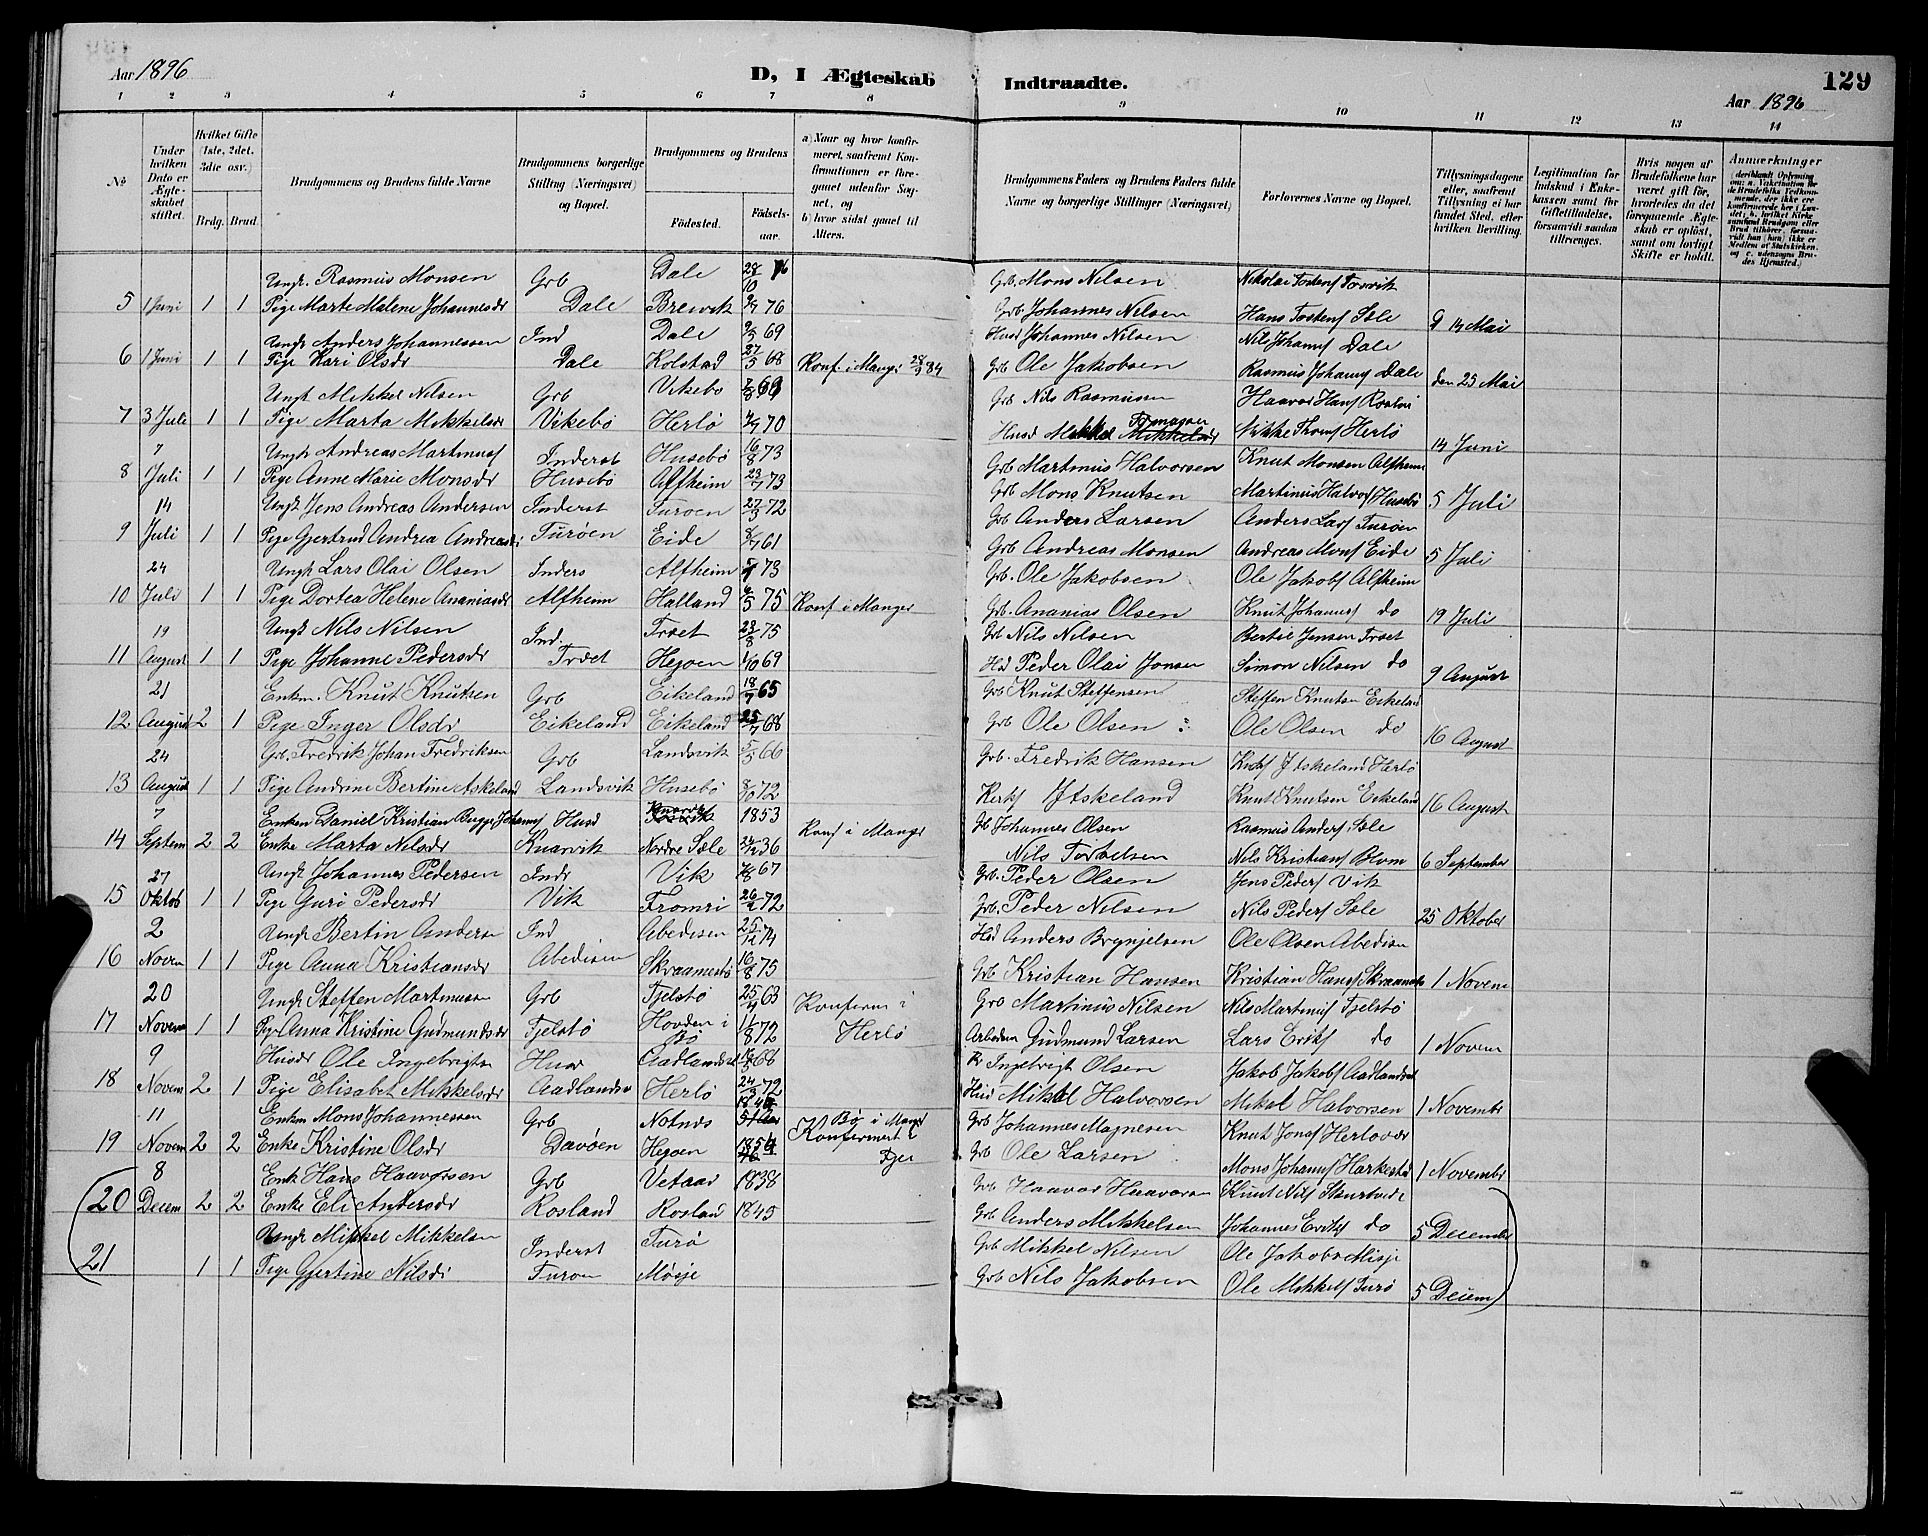 Aar 1896
D, I Ægteskab Indtraadte.
129
Aar 1896
1 2 3 4 5 6 7 8 9 10 11 12 13 14
No
Under hvilken Dato er Ægteskabet stiftet.
Hvilket Gifte (1ste, 2det, 3die osv.)
Brdg. Brud.
Brudgommens og Brudens fulde Navne
Brudgommens borgerlige Stilling (Næringsvei) og Bopæl.
Brudgommens og Brudens
Födested.
Födselsaar.
a) Naar og hvor konfirmeret, saafremt Konfirmationen er foregaaet udenfor Sognet, og
b) hvor sidst gaaet til Alters.
Brudgommens Faders og Brudens Faders fulde Navne og borgerlige Stillinger (Næringsvei)
Forlovernes Navne og Bopæl.
Tillysningsdagene eller, saafremt Tillysning ei har fundet Sted, efter hvilken Bevilling.
Legitimation for Indskud i Enkekassen samt for Giftetilladelse, forsaavidt saadan tiltrænges.
Hvis nogen af Brudefolkene har været gift för, hvorledes da det foregaaende Ægteskab er oplöst, samt om lovligt Skifte er holdt.
Anmærkninger
Ungk. Rasmus Monsen Grb Dale 28/10 76 Grb Mons Nilsen Nikolai Tostens Torsvik
5 1 Juni 1 1 Pige Marte Malene Johannesdr Dale Brewik 76 Grb Johannes Nilsen Hans Tostens Sæle d 14 Mai
Ungk Anders Johannessen Ind Dale 69 Husd Johannes Nilsen Nils Johans Dale
6 1 Juni 1 1 Pige Kari Olsdr Dale Kolstad 27/5 68 Konf. i Manger 84 Grb Ole Jakobsen Rasmus Johans Dale den 25 Mai
Ungk Mikkel Nilsen Grb Vikebö 69 Grb Nils Rasmussen Haavar Hans
7 3 Juli 1 1 Pige Marta Mikkelsdr Vikebø Herlø 70 Husd Mikkel Herlø 14 Juni
7 Ungk Andreas Martinus Inderst Husebö 16/8 73 Grb Martinus Halvorsen Knut Monsen Alfheim
8 Juli 1 1 Pige Anne Marie Monsdr Husebö Alfheim 23/7 73 Grb Mons Knutsen Martinus Halvors Husebö 5 Juli
14 Ungk Jens Andreas Andersen Inderst Turøen 27/3 72 Grb Anders Larsen Anders Lars Turøen
9 Juli 1 1 Pige Gjertrud Andrea Andreasdr Turøen Eide 61 Grb Andreas Monsen Andreas Mons Eide 5 Juli
24 Ungk Lars Olai Olsen Inders Alfheim 73 Grb. Ole Jakobsen Ole Jakobs Alfheim
10 Juli 1 1 Pige Dortea Helene Ananiasdr Alfheim Halland 75 Konf i Manger Grb. Ananias Olsen Knut Johans do 19 Juli
19 Ungk Nils Nilsen Ind. Træt 28/8 75 Grb Nils Nilsen Bertil Jensen Træt
11 August 1 1 Pige Johanne Pedersdr Træt Hegøen 69 Hsd Peder Olai Jonsen Simon Nilsen do 9 August
21 Enkm. Knut Knutsen Grb Eikeland 18/7 65 Grb Knut Steffensen Steffen Knutsen Eikeland
12 August 2 1 Pige Inger Olsdr Eikeland Eikeland 25/7 68 Grb Ole Olsen Ole Olsen do 16 August
24 Grb. Fredrik Johan Fredriksen Grb Landsvik 66 Grb. Fredrik Hansen Herlø
13 August 1 1 Pige Andrine Bertine Askeland Landsvik Husebö 8/10 72 Askeland Knut Knutsen Eikeland 16 August
7 Enkem Daniel Kristian Bugge Johans Husd Knarvik 1853 Grb Johannes Olsen Rasmus Anders Sæle
14 Septem 2 2 Enke Marta Nilsdr Knarvik Nordre Sæle 36 Konf i Manger Nils Torkelsen Nils Kristians Blom 6 September
27 Ungk Johannes Pedersen Indr Vik 67 Grb. Peder Olsen Jens Peders Vik
15 Oktob 1 1 Pige Guri Pedersdr Vik Fromri 72 Grb. Peder Nilsen Nils Peders Sæle 25 Oktober
2 Ungk Bertin Anderse Ind Abedisen 25/12 74 Hsd Anders Brynjelsen Ole Olsen Abedisen
16 Novem 1 1 Pige Anna Kristiansdr Abedisen Skraamestö 16/8 75 Grb Kristian Hansen Kristian Hans Skraamestö 1 Novem
20 Ungk Steffen Martinusen Grb Tjelstø 25/4 63 Konferm i Grb Martinus Nilsen Nils Martinus Tjelstø
17 Novem 1 1 Pige Anna Kristine Gudmundsdr Tjelstø Hovden i Bö 11/8 72 Herlø Arbeider Gudmund Larsen Lars Eriks do 1 Novem
9 Husdr Ole Ingebrigtsen Husdr Aadlandsvd 68 Ingebrigt Olsen Jakob Jakobs Aadlandsvd
18 Novem 2 1 Pige Elisabet Mikkelsdr Aadlandsv Herlø 72 Husd Mikkel Halvorsen Mikal Halvorsen 1 November
11 Enkm Mons Johannessen Grb Notnes 1845 Bø i Manger Grb Johannes Magnesen Knut Jonas Herløvær
19 Novem 2 2 Enke Kristine Olsdr Davøen Hegøen 1854 Konfermert i Grb Ole Larsen Mons Johans Harkestad 1 November
8 Enk Hans Haavorsen Grb Vetaas 1838 Grb Haavar Haavarsen Knut Nils Skurtveit
20 Decem 2 2 Enke Eli Andersdr Rosland Rosland 1845 Grb Anders Mikkelsen Johannes Eriks do 5 December
Ungk Mikkel Mikkelsen Inderst Turø Grb Mikkel Nilsen Ole Jakobs Misje
21 1 1 Pige Gjertine Nilsdr Turøen Misje Grb Nils Jakobsen Ole Mikkels Turö 5 Decem